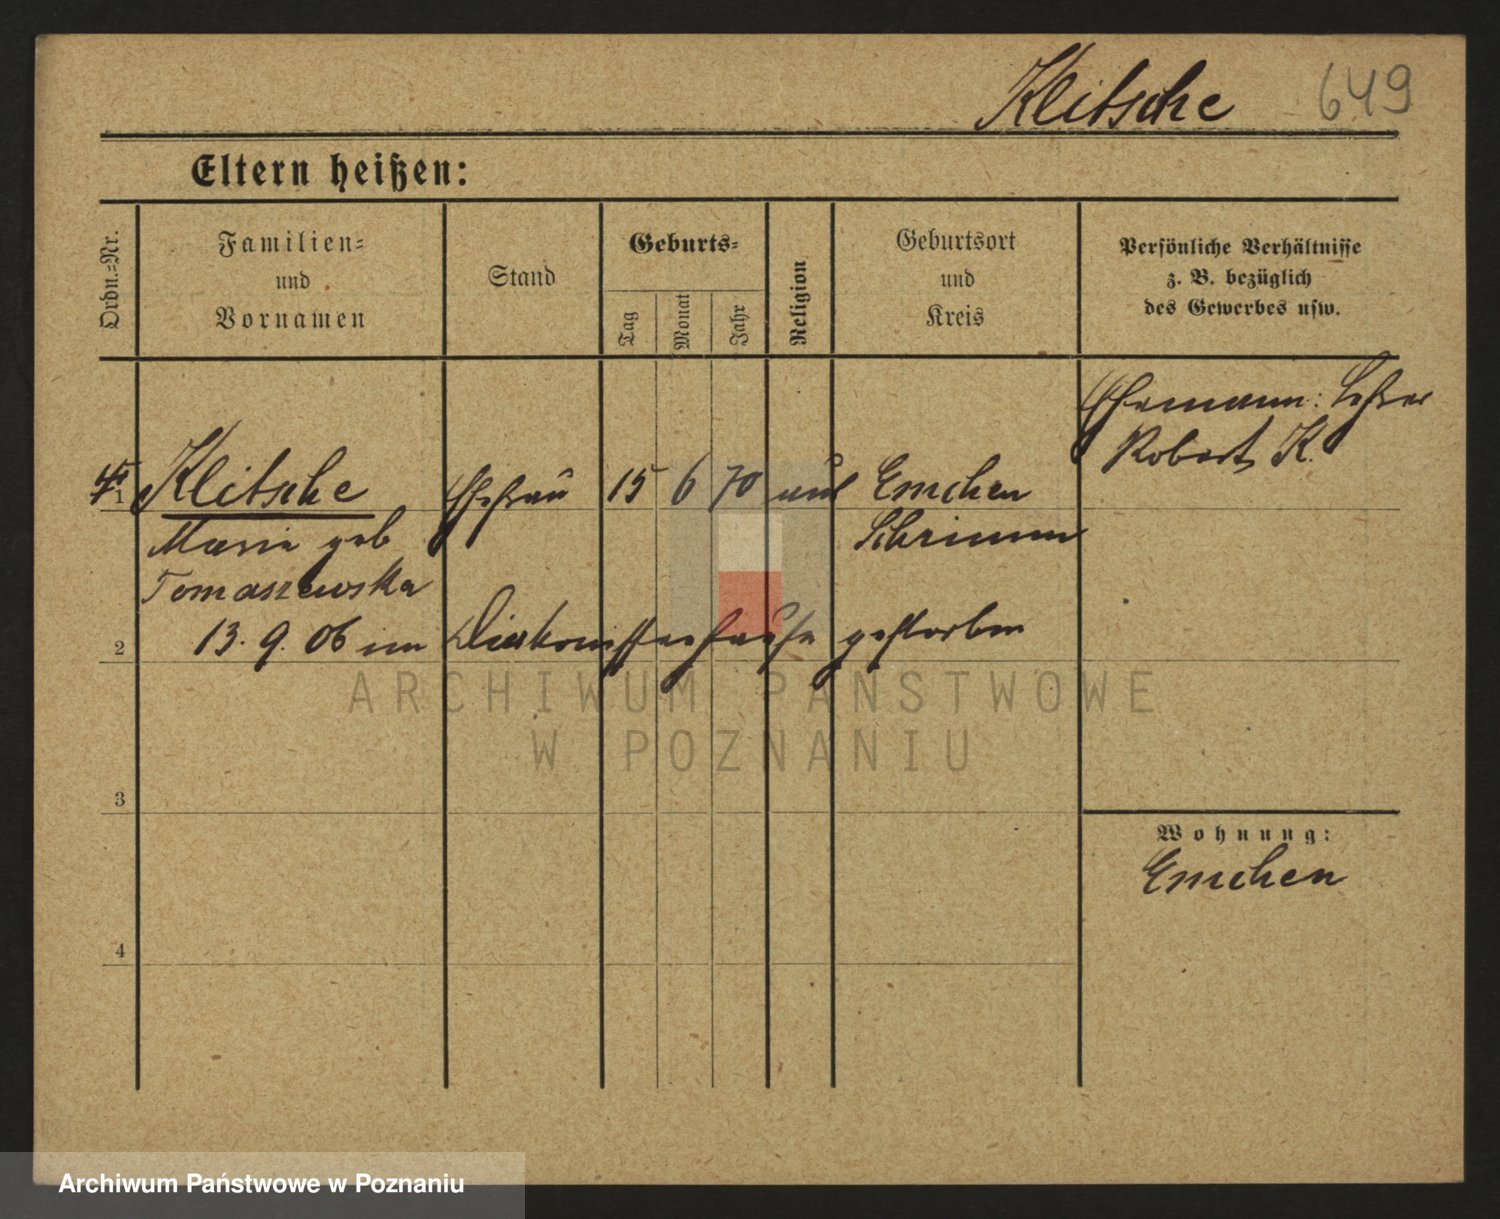 Klitsche 649
Eltern heißen:
Ordn.-Nr.
Familien-
und
Vornamen
Stand
Geburts-
Tag
Monat
Jahr
Religion
Geburtsort
und
Kreis
Persönliche Verhältnisse
z. B. bezüglich
des Gewerbes usw.
Ehemann: Lehrer
Robert K.
1 Klitsche Ehefrau 15 6 70 Emchen
Marie geb Schrimm
Tomaszewska
2 13. 9. 06 im Diakonissenhause gestorben
3
4
Wohnung:
Emchen
ARCHIWUM PAŃSTWOWE
W POZNANIU
Archiwum Państwowe w Poznaniu